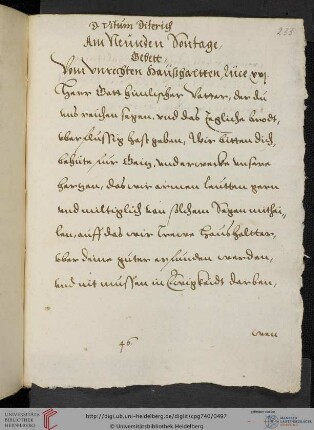 D. Vitum Diterich
255
Am Neunden Sontage,
Gebett,
Vom vnrechten Haußhaltten, Luce xvj
Herr Gott himlischer Vatter, der du
vns reichen segen, vnd das tegliche brodt,
vberflussig hast geben, Wir bitten dich,
behüte für Geitz, vnd erwecke vnsere
hertzen, das wir armen leutten gern
vnd miltiglich von solchem Segen mithei-
len, auff das wir Trewe Haushaltter,
vber deine güter erfunden werden,
vnd nit mussen in Ewigkeidt darben,
46.
wan
UNIVERSITÄTS-
BIBLIOTHEK
HEIDELBERG
http://digi.ub.uni-heidelberg.de/diglit/cpg740/0497
© Universitätsbibliothek Heidelberg